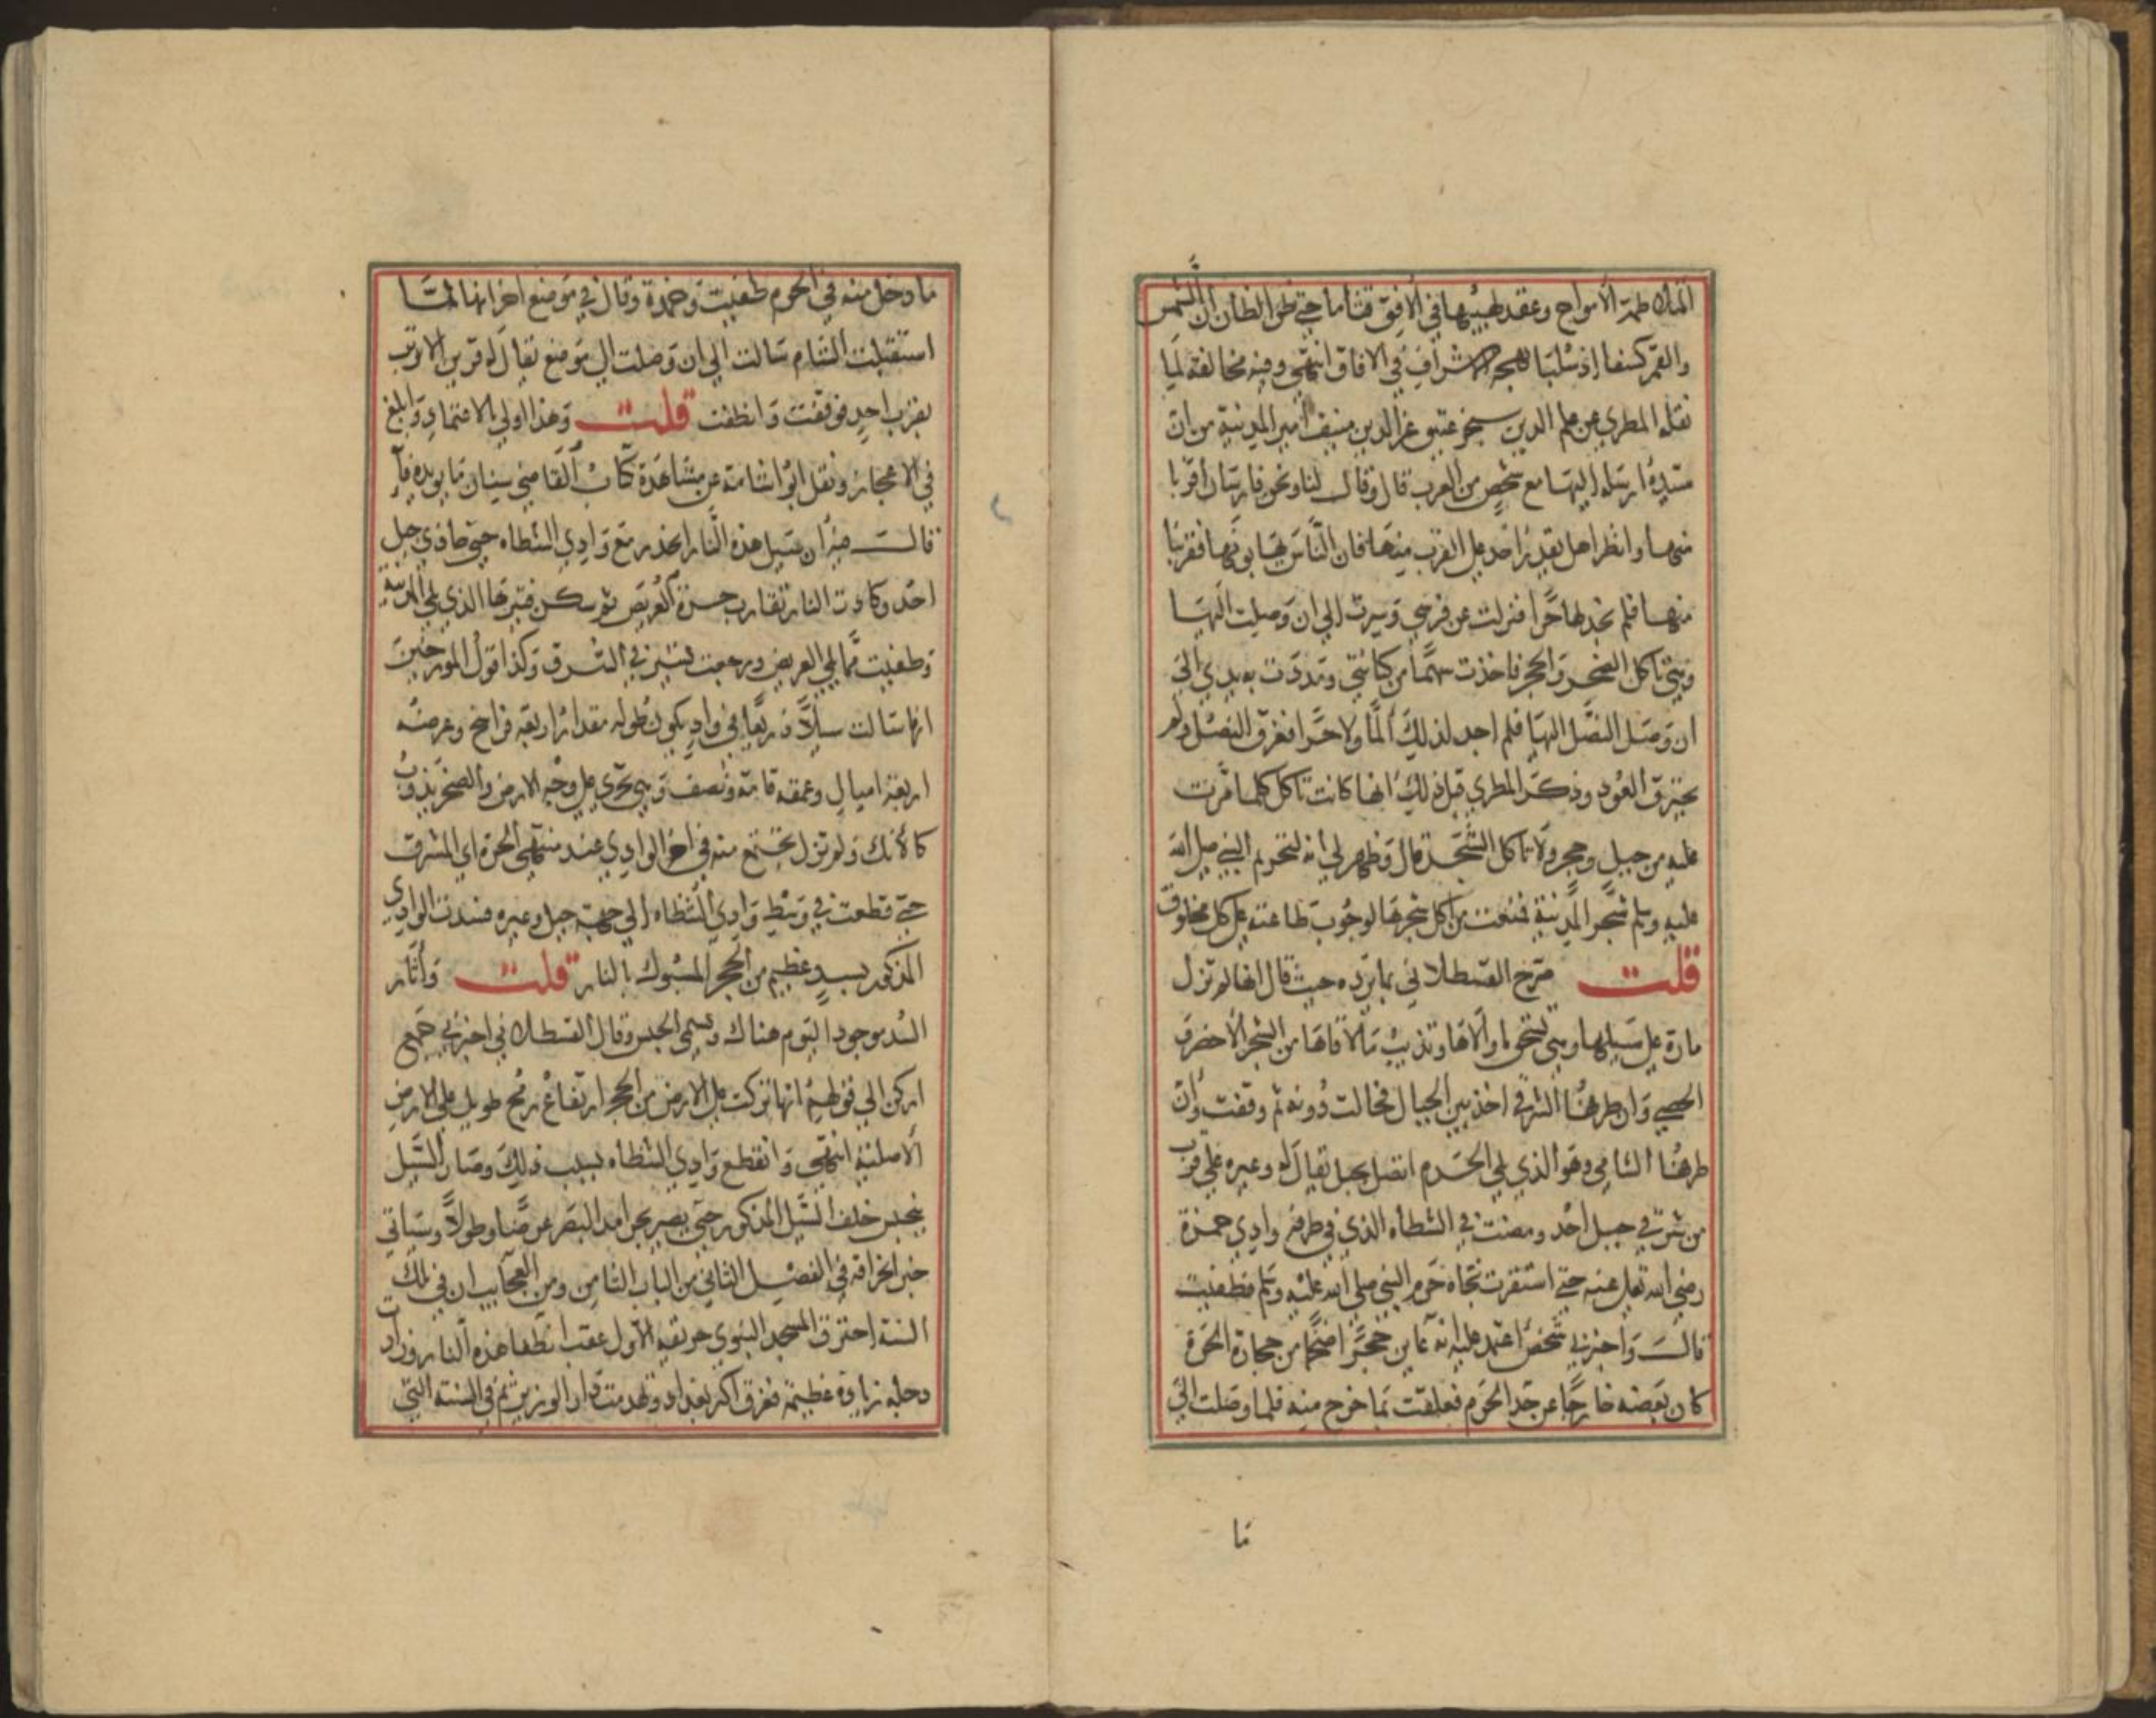 المتلاطمة الامواج وعقد لهيبها في الافق قتاما حتى ظن الظان ان الشمس
والقمر كسفا اذ سلبا بهجة الاشراق في الافاق انتهى وفيه مخالفة لما
نقله المطري عن علم الدين سنجر عتيق عز الدين منيف امير المدينة من ان
سيده ارسله اليها مع شخص من العرب قال وقال لنا ونحن فارسان اقربا
منها وانظرا هل يقدر احد على القرب منها فان الناس يهابونها فقربنا
منها فلم نجد لها حرا فنزلت عن فرسي وسرت الى ان وصلت اليها
وهي تاكل الصخر والحجر فاخذت سهما من كنانتي ومددت به يدي الى
ان وصل النصل اليها فلم اجد لذلك ألما ولا حرا فغرق النصل ولم
يحترق العود وذكر المطري قبل ذلك انها كانت تاكل كلما مرت
عليه من جبل وحجر ولا تاكل الشجر قال وظهر لي انه لتحريم النبي صلى الله
عليه وسلم شجر المدينة فمنعت من اكل شجرها لوجوب طاعته على كل مخلوق
قلت صرح القسطلاني بما يرده حيث قال انها لم تزل
مارة على سبيلها وهي تسحق ما والاها وتذيب ما لاقاها من الشجر الاخضر و
الحصى وان طرفها الشرقي اخذ بين الجبال فحالت دونه ثم وقفت وان
طرفها الشامي وهو الذي يلي الحرم اتصل بجبل يقال له وعيرة على قرب
من شرقي جبل احد ومضت في الشظاه الذي في طرفه وادي حمزة
رضي الله تعالى عنه حتى استقرت تجاه حرم النبي صلى الله عليه وسلم فطفيت
قال واخبرني شخص اعتمد عليه انه عاين حجرا ضخما من حجارة الحرة
كان بعضه خارجا عن حد الحرم فعلقت بما خرج منه فلما وصلت الى
ما
ما دخل منه في الحرم طفيت وخمدة وقال في موضع اخر انها لما
استقبلت الشام سالت الى ان وصلت الى موضع يقال له قرين الارنب
بقرب احد فوقفت وانطفت قلت وهذا اولى بالاعتماد وابلغ
في الاعجاز ونقل ابو اشامة عن مشاهدة كتاب القاضي سنان ما يويده فا
قال فيه ان سيل هذه النار انحدر مع وادي الشظاه حتى حاذى جبل
احد وكادت النار تقارب حرة العريض ثم سكن قتيرها الذي يلي المدينة
وطفيت مما يلي العريض ورجعت تسير في الشرق وكذا قول المورخين
انها سالت سيلا ذريعا في واد يكون طوله مقدار اربعة فراسخ وعرضه
اربعة اميال وعمقه قامة ونصف وهي تجري على وجه الارض والصخر يذوب
كالانك ولم تزل تجتمع منه في اخر الوادي عند منتهى الحرة اي المشرق
حتى قطعت في وسط وادي الشظاه الى جهة جبل وعيره فسدت الوادي
المذكور بسد عظيم من الحجر المسبوك بالنار قلت وأثار
السد موجود اليوم هناك ويسمى الحبس وقال القسطلاني اخبرني جمع
اركن الى قولهم انها تركت على الارض من الحجر ارتفاع رمح طويل على الارض
الاصلية انتهى وانقطع وادي الشظاه بسبب ذلك وصار السيل
ينحبس خلف السيل المذكور حتى يصير بحرا مد البصر عرضا وطولا وسياتي
خبر انخراقه في الفصل الثاني من الباب الثامن ومن العجايب ان في تلك
السنة احترق المسجد النبوي حريقه الاول عقب انطفا هذه النار وزادت
دجلة زيادة عظيمة فغرق اكثر بغداد وتهدمت دار الوزير ثم في السنة التي